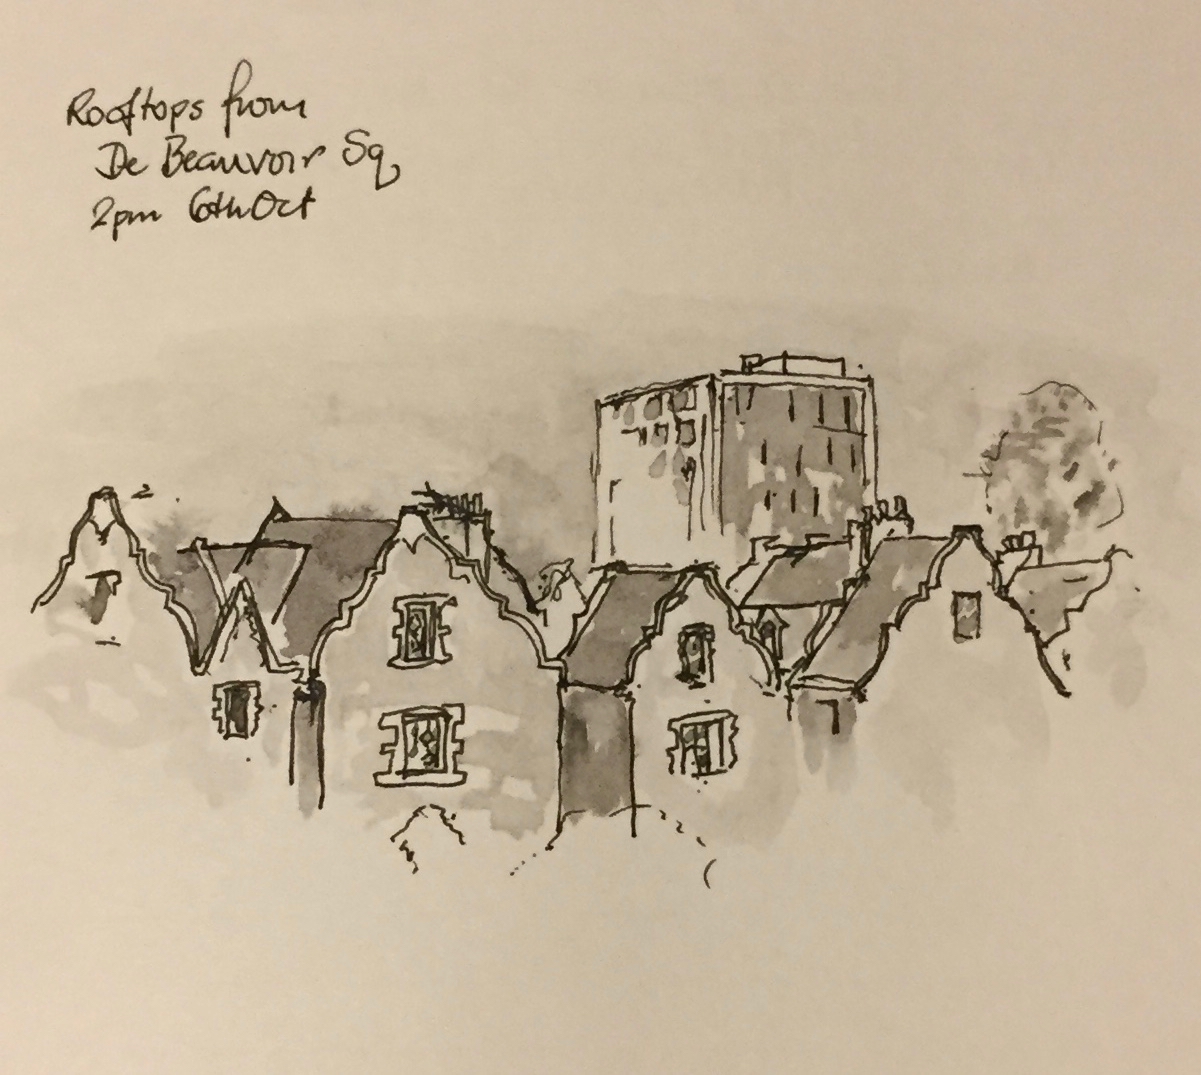 Rooftops from
De Beauvoir Sq
2pm 6th Oct